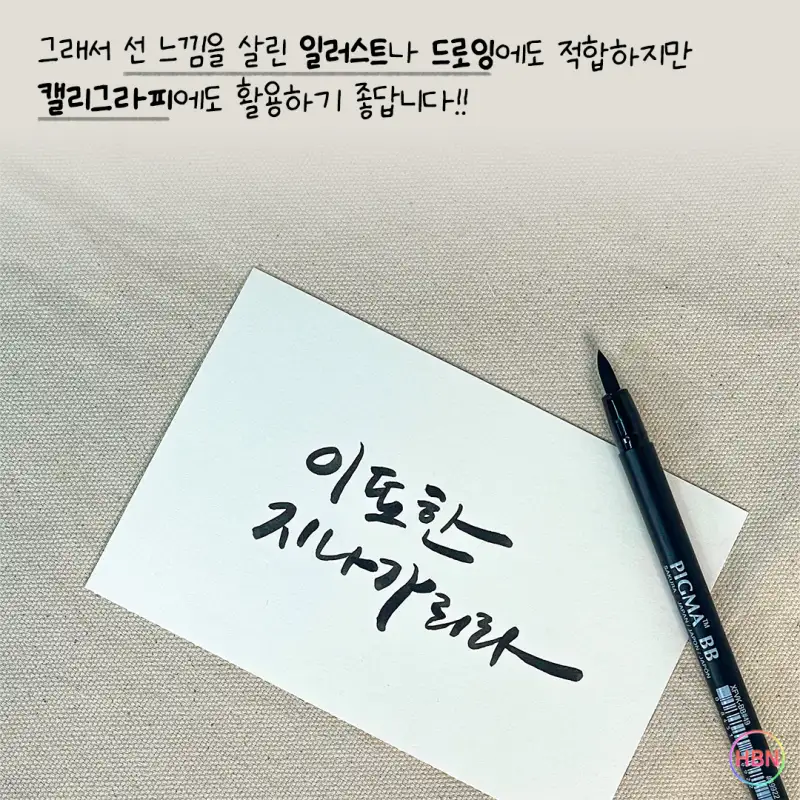 그래서 선 느낌을 살린 일러스트나 드로잉에도 적합하지만
캘리그라피에도 활용하기 좋답니다!!
이 또한
지나가리라
PIGMA™ BB
SAKURA JAPAN / JAPON / JAPÓN
XFVK-BB#49
HBN